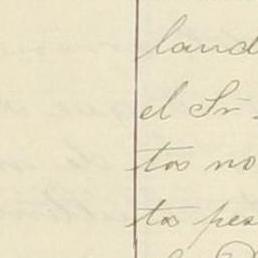 land
el Sr.
tos no
tos pes